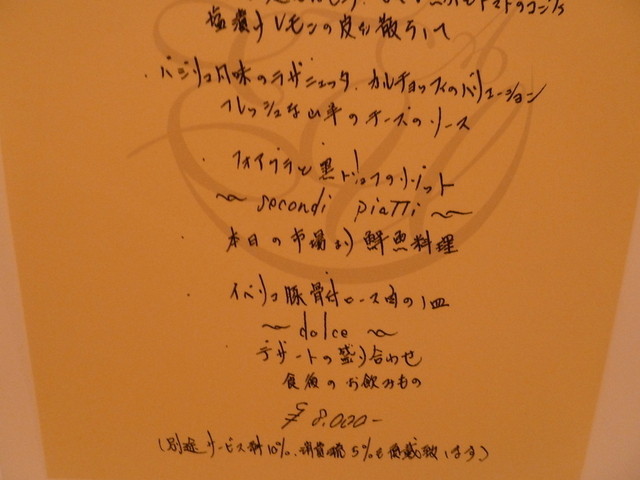 塩漬けレモンの皮を散らして
・バジリコ風味のラザニェッタ、カルチョッフィのバリエーション
フレッシュな山羊のチーズのソース
・フォアグラと黒トリュフのリゾット
〜 secondi piatti 〜
・本日の市場より鮮魚料理
・イベリコ豚骨付ロース肉の1皿
〜 dolce 〜
デザートの盛り合わせ
食後のお飲みもの
¥8,000-
(別途サービス料10%、消費税5%を頂戴致します)